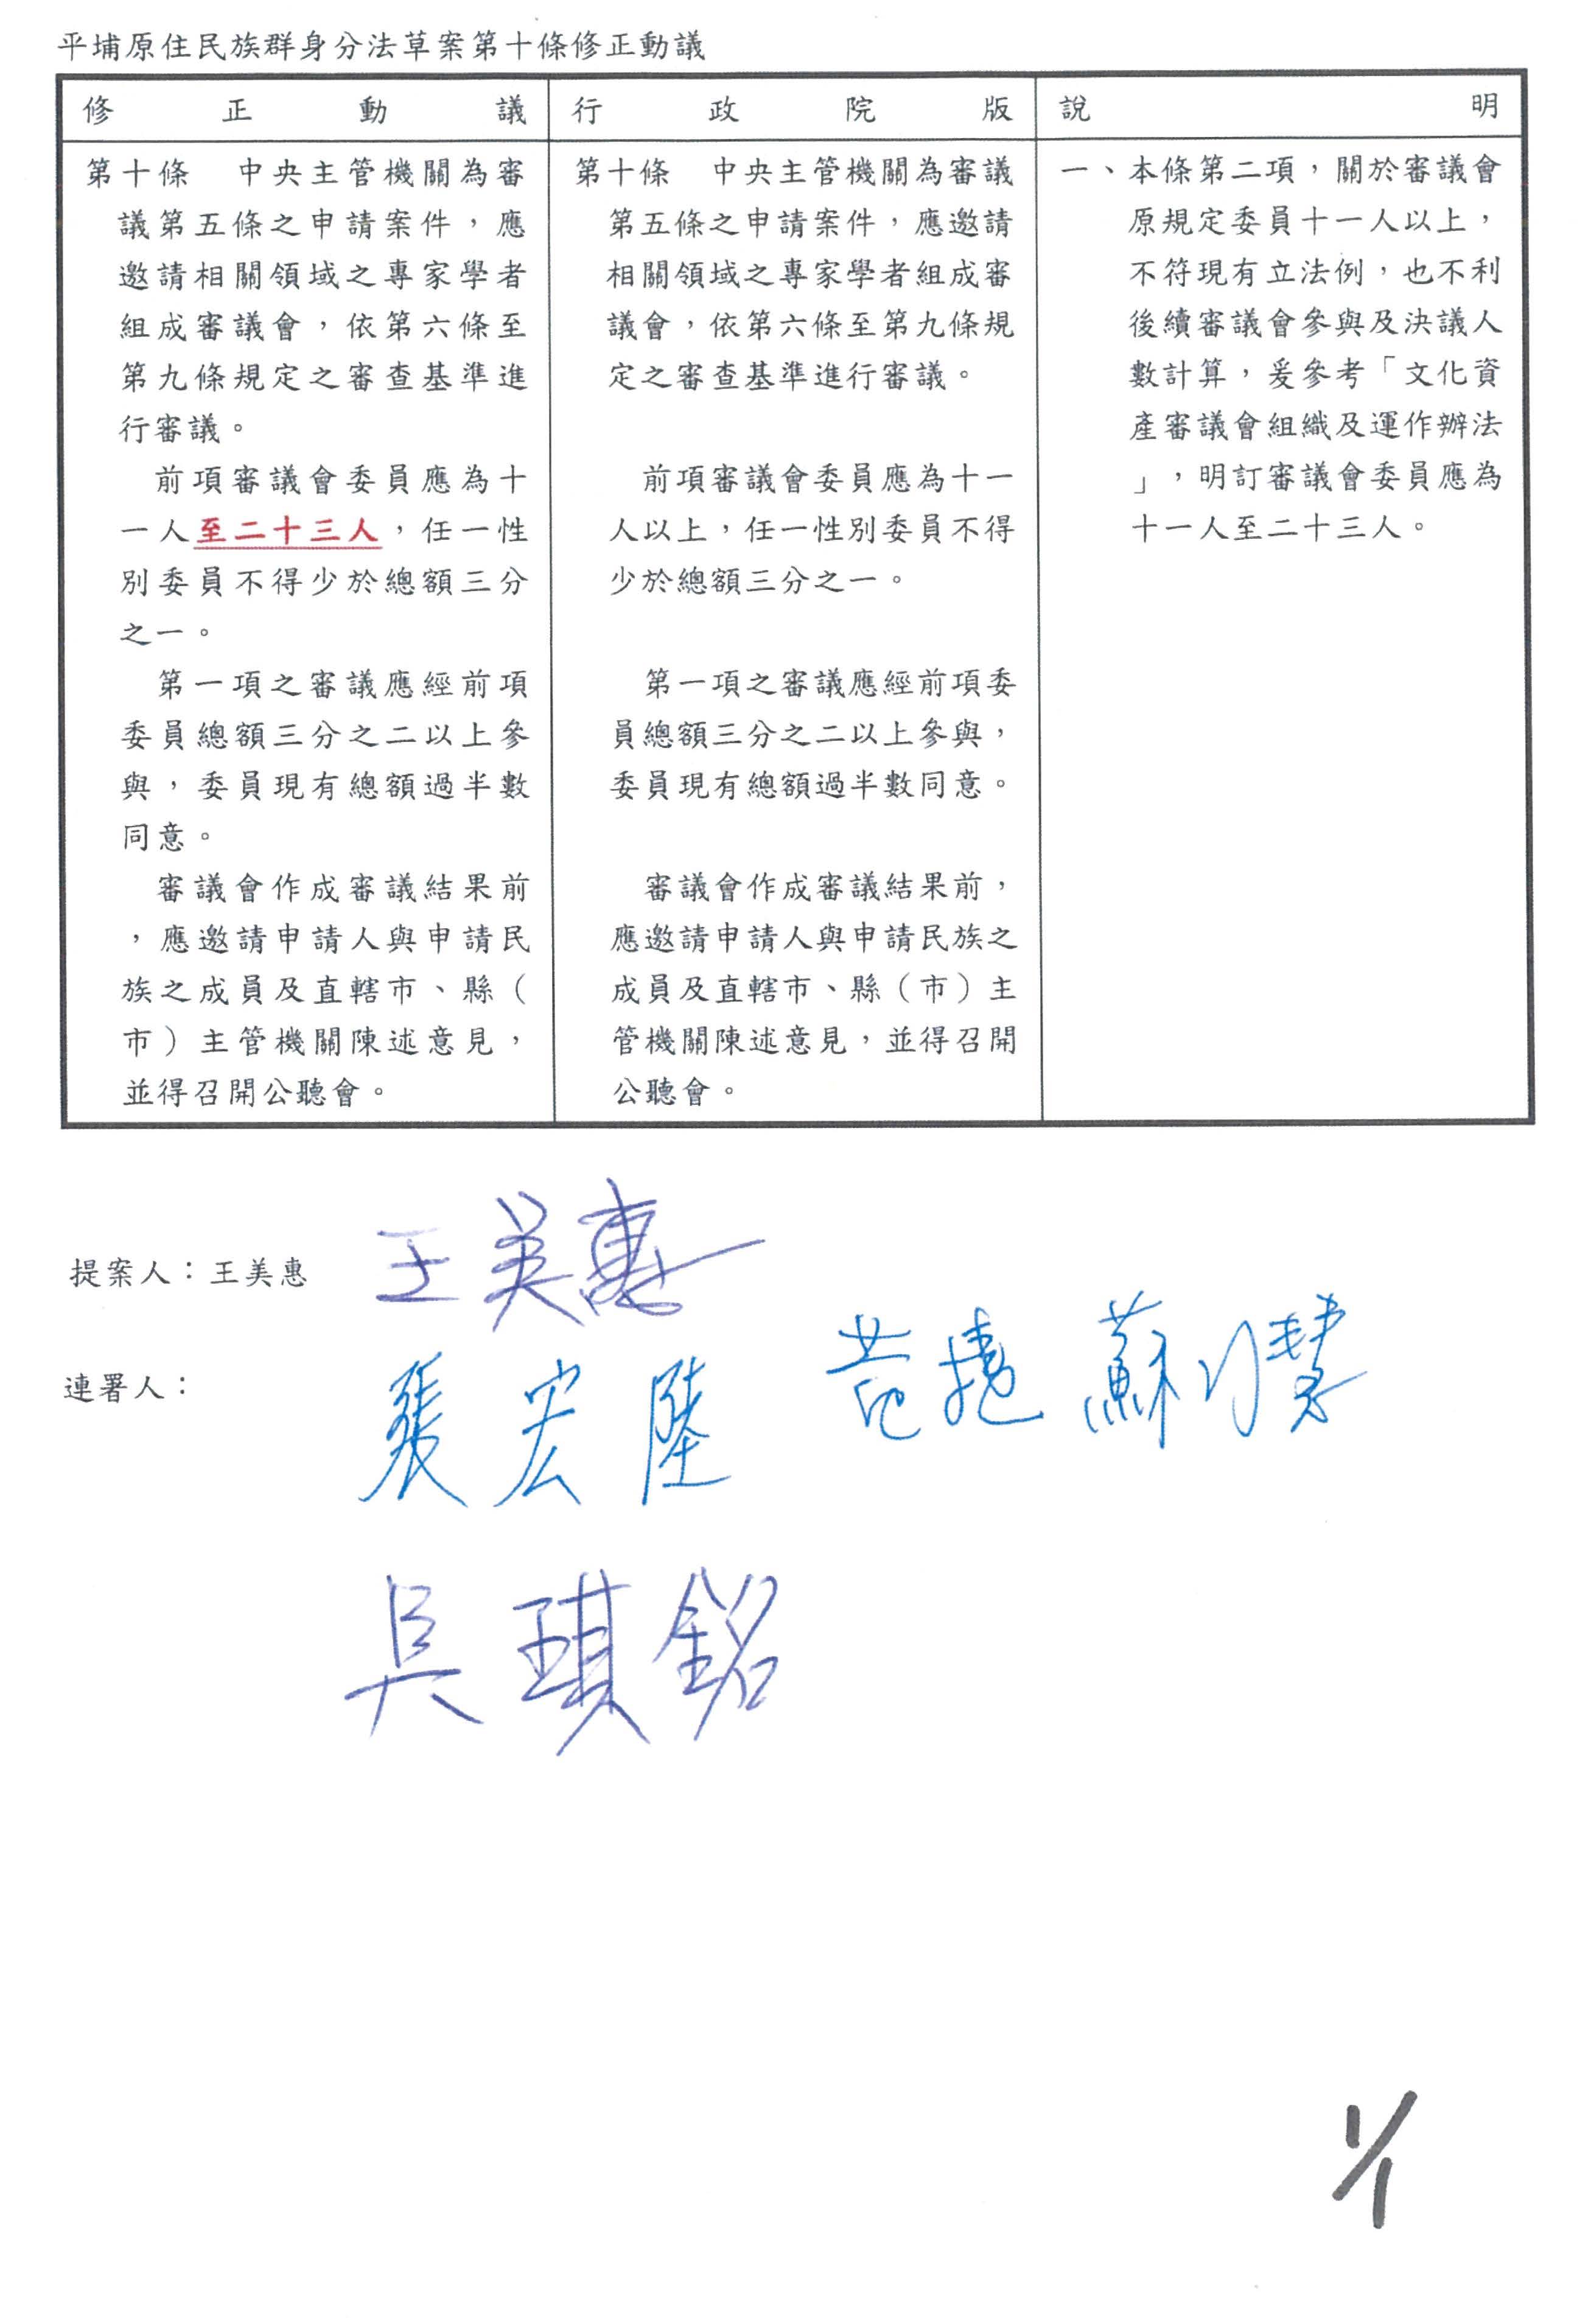 平埔原住民族群身分法草案第十條修正動議
修正動議
第十條　中央主管機關為審
議第五條之申請案件，應
邀請相關領域之專家學者
組成審議會，依第六條至
第九條規定之審查基準進
行審議。
前項審議會委員應為十
一人至二十三人，任一性
別委員不得少於總額三分
之一。
第一項之審議應經前項
委員總額三分之二以上參
與，委員現有總額過半數
同意。
審議會作成審議結果前
，應邀請申請人與申請民
族之成員及直轄市、縣（
市）主管機關陳述意見，
並得召開公聽會。
行政院版
第十條　中央主管機關為審議
第五條之申請案件，應邀請
相關領域之專家學者組成審
議會，依第六條至第九條規
定之審查基準進行審議。
前項審議會委員應為十一
人以上，任一性別委員不得
少於總額三分之一。
第一項之審議應經前項委
員總額三分之二以上參與，
委員現有總額過半數同意。
審議會作成審議結果前，
應邀請申請人與申請民族之
成員及直轄市、縣（市）主
管機關陳述意見，並得召開
公聽會。
說明
一、本條第二項，關於審議會
原規定委員十一人以上，
不符現有立法例，也不利
後續審議會參與及決議人
數計算，爰參考「文化資
產審議會組織及運作辦法
」，明訂審議會委員應為
十一人至二十三人。
提案人：王美惠 王美惠
連署人：
張宏陸
蘇巧慧
吳琪銘
1/1